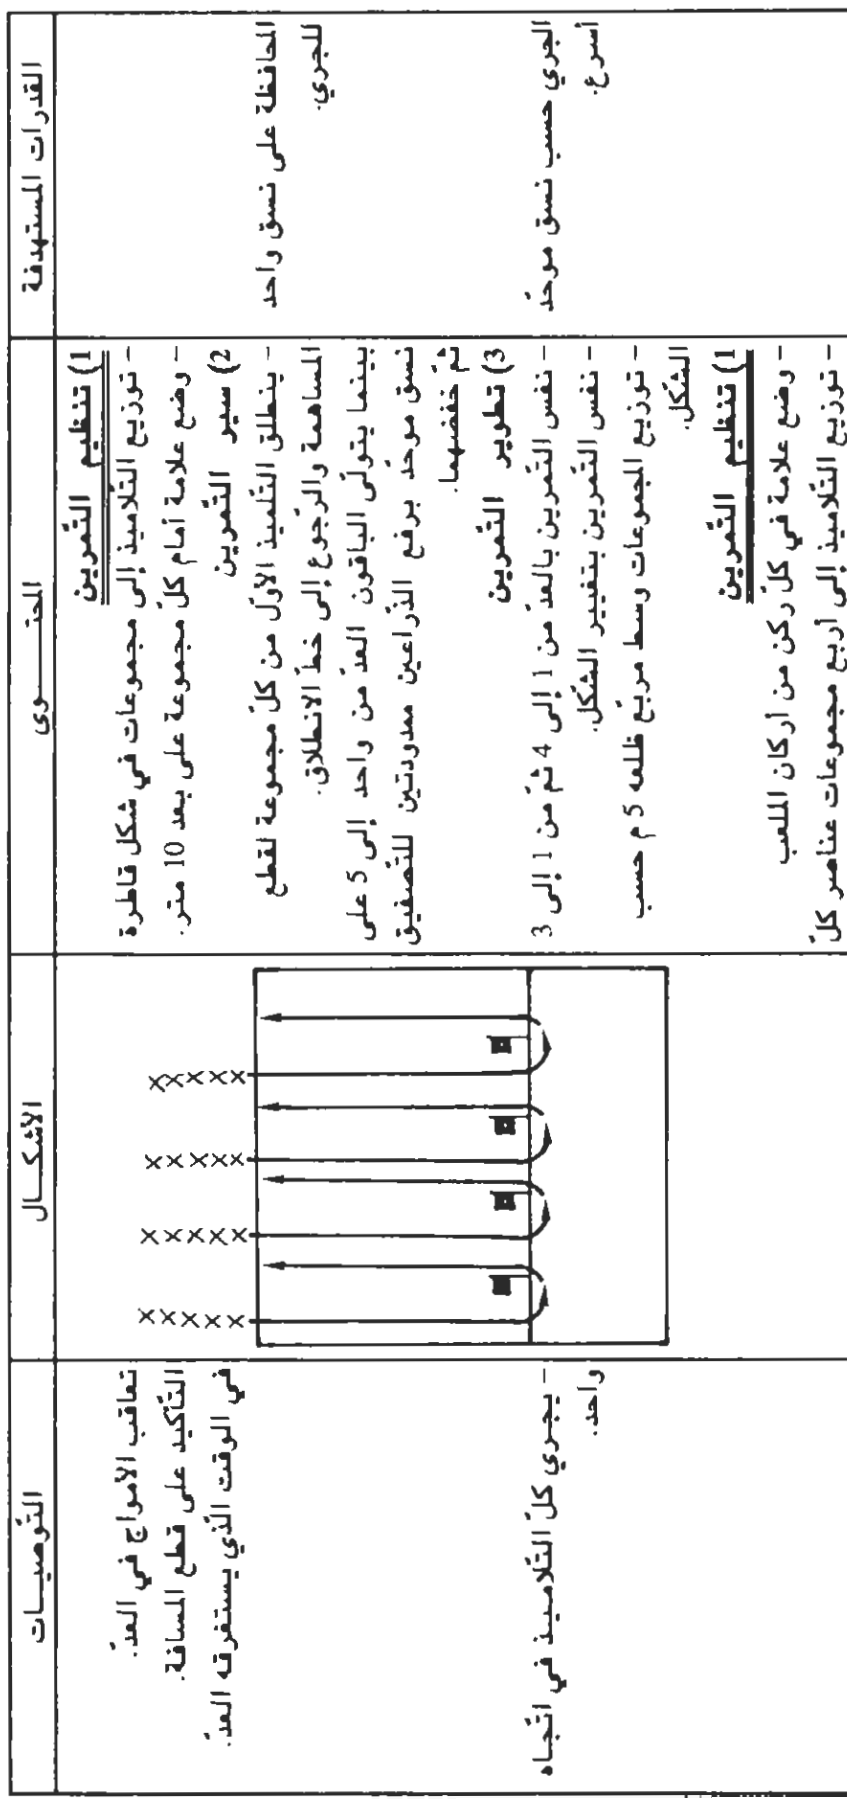 القدرات المستهدفة
المحافظة على نسق واحد
للجري.
الجري حسب نسق موحّد
أسرع.
المحتــوى
1) تنظيم التّمرين
- توزيع التّلاميذ إلى مجموعات في شكل قاطرة
- وضع علامة أمام كلّ مجموعة على بعد 10 متر.
2) سير التّمرين
- ينطلق التّلميذ الأوّل من كلّ مجموعة لقطع
المساهمة والرّجوع إلى خطّ الانطلاق.
بينما يتولّى الباقون العدّ من واحد إلى 5 على
نسق موحّد برفع الذّراعين ممدودتين للتّصفيق
ثمّ خفضهما.
3) تطوير التّمرين
- نفس التّمرين بالعدّ من 1 إلى 4 ثمّ من 1 إلى 3
- نفس التّمرين بتغيير الشّكل.
- توزيع المجموعات وسط مربّع ظلعه 5 م حسب
الشّكل.
1) تنظيم التّمرين
- وضع علامة في كلّ ركن من أركان الملعب
- توزيع التّلاميذ إلى أربع مجموعات عناصر كلّ
الأشكــال
×××××
×××××
×××××
×××××
التّوصيــات
تعاقب الأمواج في العدّ.
التّأكيد على قطع المسافة.
في الوقت الّذي يستغرقه العدّ.
- يجري كلّ التّلاميـذ في اتّجاه
واحد.